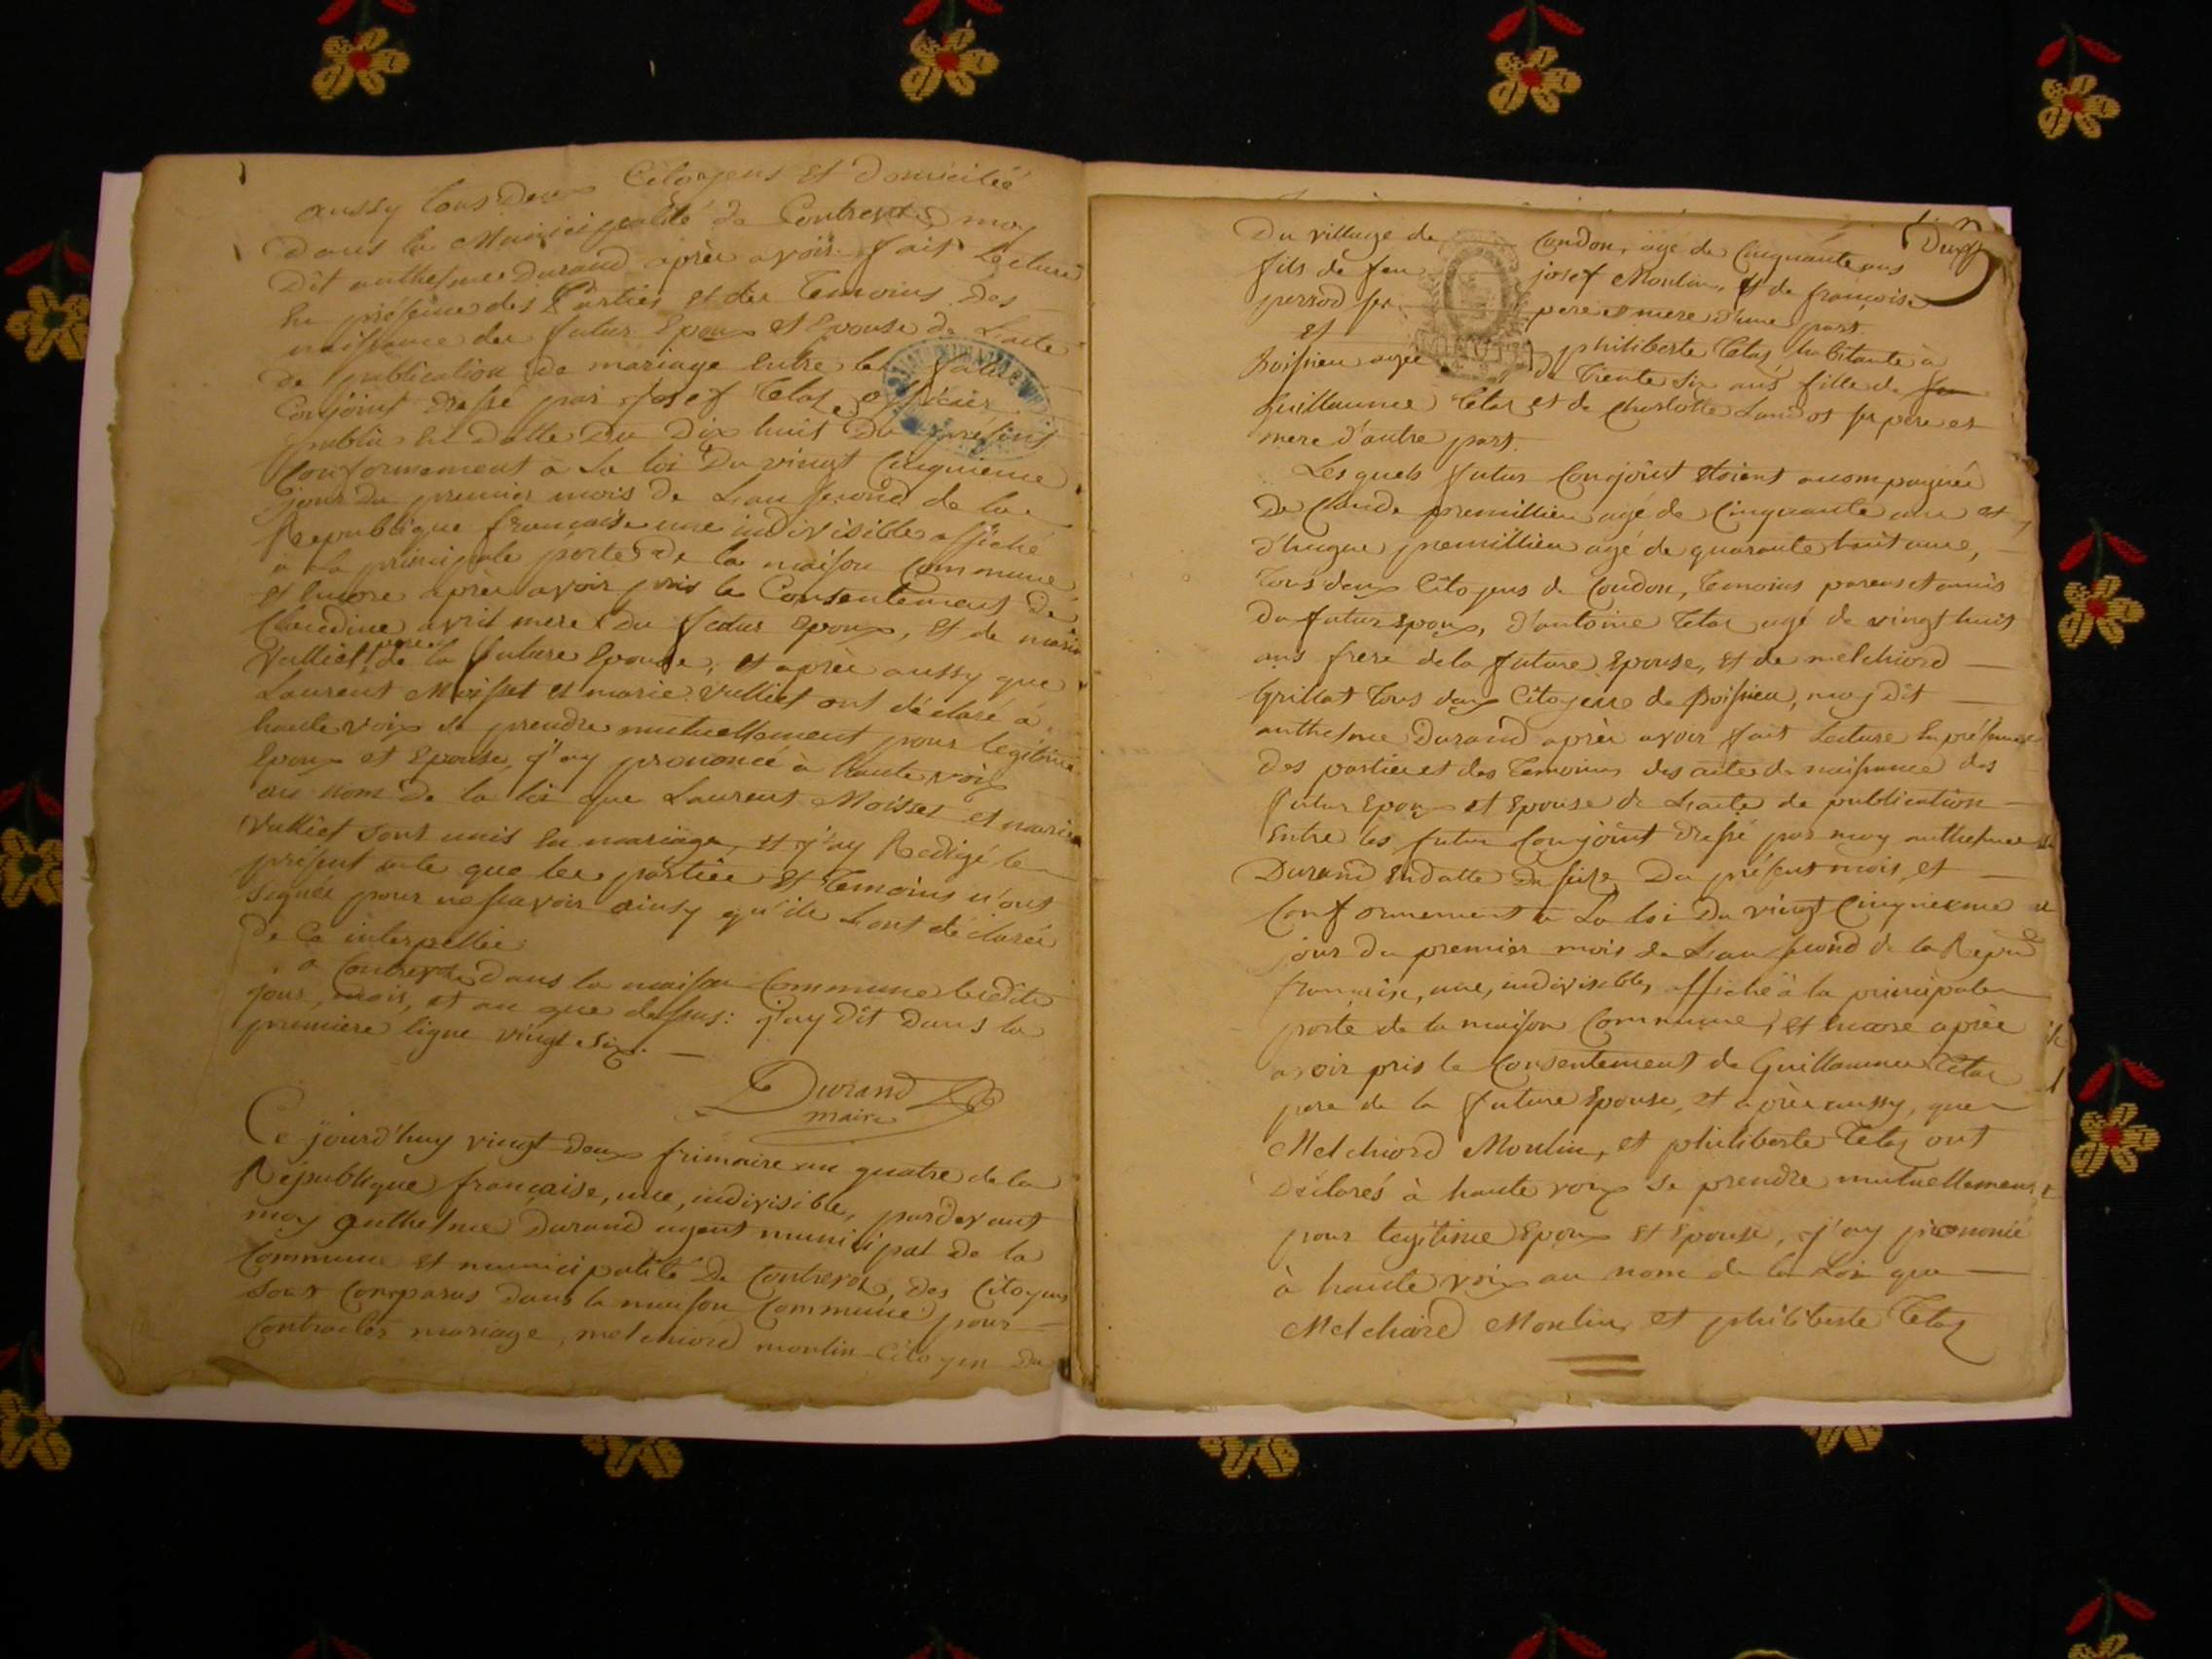 aussy tous deux Citoyens et domicilié
dans la Municipalité de Contrevoz, moy
Dit anthelme Durand après avoir fait Lecture
En présence des Parties et des Temoins des
naissance des futur Epoux et Epouse de L'acte
De publication de mariage Entre les futur
Conjoint dressé par Josef Tetaz officier
public En datte du Dix huit Du présent
Conformement à La loi Du vingt Cinquieme
jour du premier mois de L'an second de la
Republique francaise une indivisible affiché
à la principale porte de la maison Commune
et Encore après avoir pris le Consentement de
Claudine avril mere Du futur Epoux, et de marie
Vulliet de la future Epouse, et après aussy que
Laurent Moisset et marie Vulliet ont déclaré à
haute voix se prendre mutuellement pour legitime
Epoux et Epouse, j'ay prononcé à haute voix
au nom De la loi que Laurent Moisset et marie
Vulliet sont unis En mariage, et j'ay Redigé le
présent acte que les parties et Temoins n'ont
Signés pour ne sçavoir ainsy qu'ils L'ont déclarés
De Ce interpellés
à Contrevoz dans la maison Commune lesdits
jour, mois, et an que dessus: j'ay dit dans la
premiere ligne vingt six. —
Durand
maire
Ce jourd'huy vingt deux frimaire an quatre de la
République française, une, indivisible, pardevant
moy anthelme Durand agent municipal de la
Commune et municipalité De Contrevoz, des Citoyens
Sont Comparus dans la maison Commune pour
Contracter mariage, melchiord moulin Citoyen Du
Deux
Du village de Condon, agé de Cinquante ans
fils de feu josef Moulin, et de françoise
perrod ses pere et mere d'une part.
Et philiberte Tetaz habitante à
Boissieu agée de Trente Six ans fille de
Guillaume Tetaz et de Charlotte Landot ses pere et
mere d'autre part.
Lesquels futur Conjoint etoient accompagnés
De Claude premillieu agé de Cinquante ans et
d'hugue premillieu agé de quarante huit ans,
Tous deux Citoyens de Condon, Temoins parens et amis
Du futur Epoux, d'antoine Tetaz agé de vingt huit
ans frere de la future Epouse, et de melchiord
Grillat Tous deux Citoyens de Boissieu, moy dit
anthelme Durand après avoir fait Lecture En présence
des parties et des Temoins des actes de naissance des
futur Epoux et Epouse de L'acte de publication
Entre les futur Conjoint dressé par moy anthelme
Durand En datte du seize Du présent mois, et
Conformement à La loi Du vingt Cinquieme
jour du premier mois de L'an second de la Repu
française, une, indivisible, affiché à la principale
porte de la maison Commune, et Encore après
avoir pris le Consentement de Guillaume Tetaz
pere de la future Epouse, et après aussy, que
Melchiord Moulin, et philiberte Tetaz ont
Déclarés à haute voix se prendre mutuellement
pour legitime Epoux et Epouse, j'ay prononcé
à haute voix au nom de la Loi que
Melchiord Moulin, et philiberte Tetaz